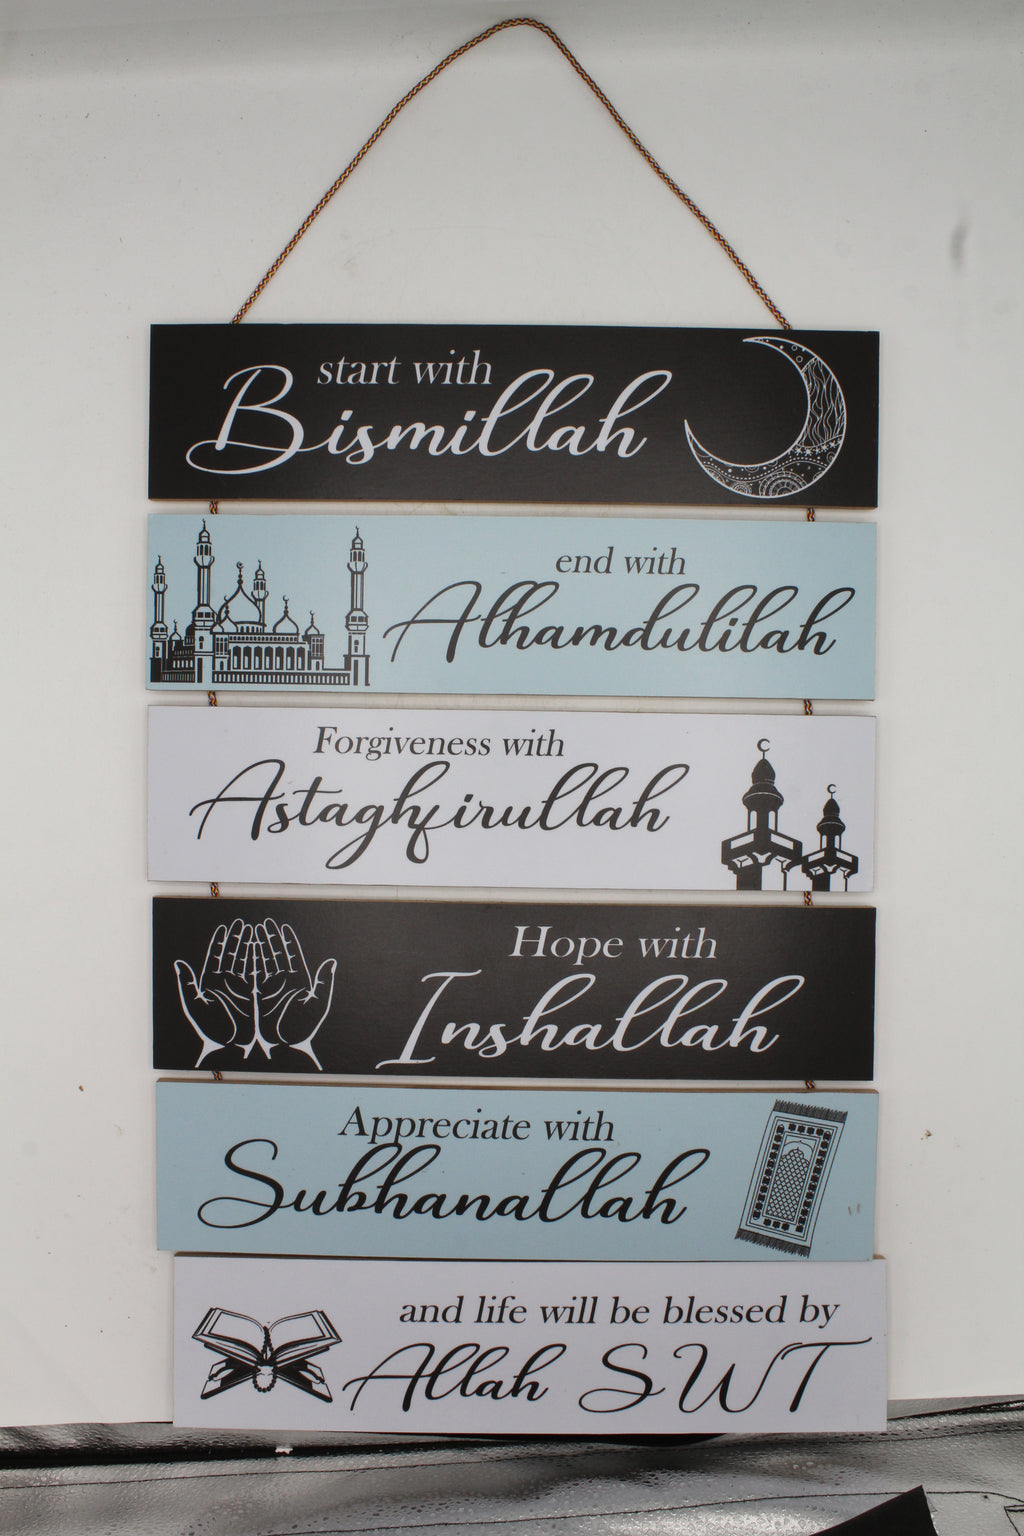 start with
Bismillah
end with
Alhamdulilah
Forgiveness with
Astaghfirullah
Hope with
Inshallah
Appreciate with
Subhanallah
and life will be blessed by
Allah SWT